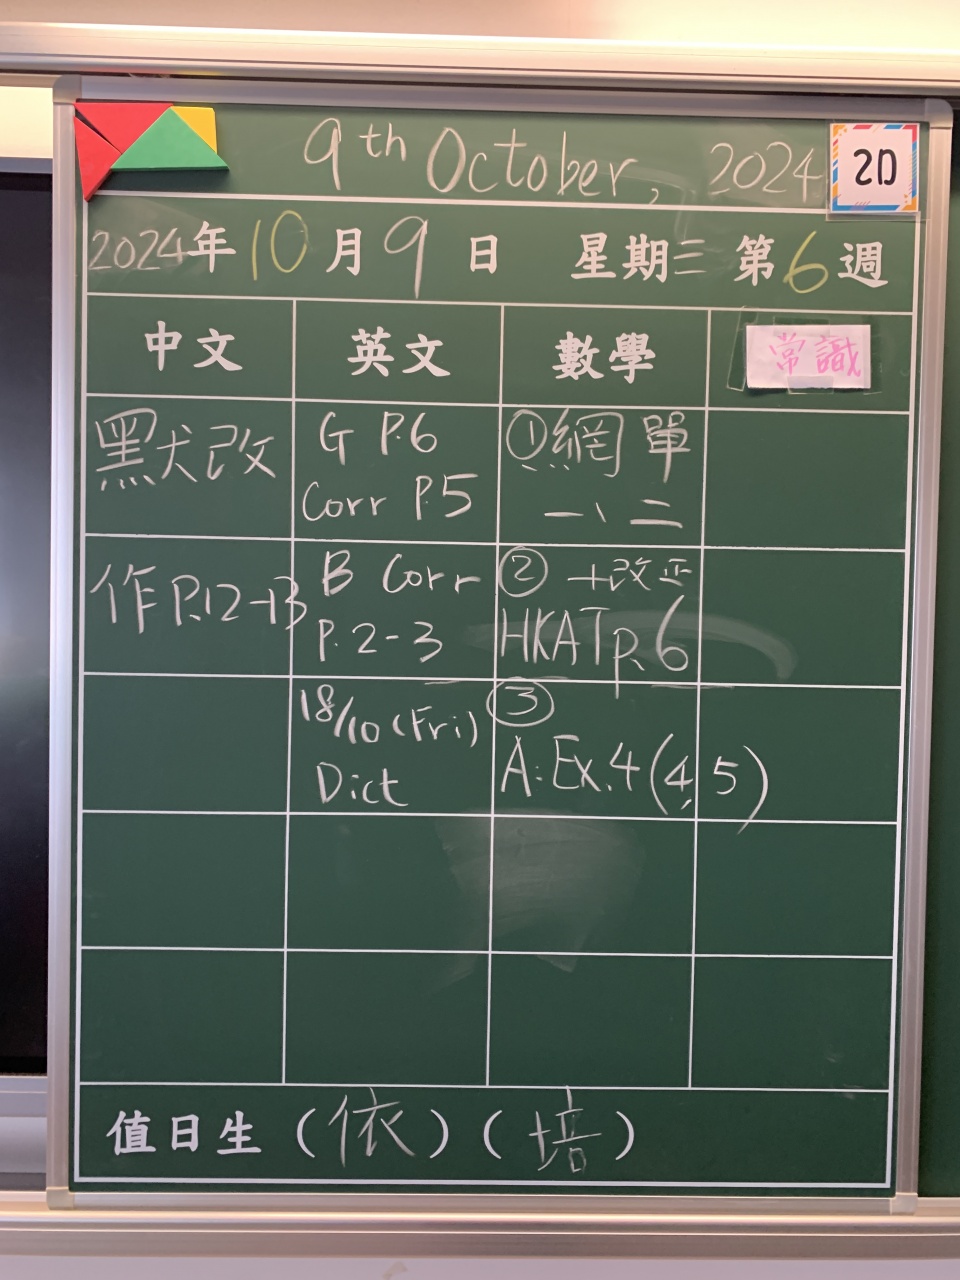 9th October, 2024
2D
2024年10月9日 星期三 第6週
中文 英文 數學 常識
默改
G P.6
Corr P.5
①網單
一、二
作P.12-13
B Corr
P.2-3
②十改正
HKAT P.6
18/10 (Fri)
Dict
③
A: Ex.4 (4, 5)
值日生（依）（培）